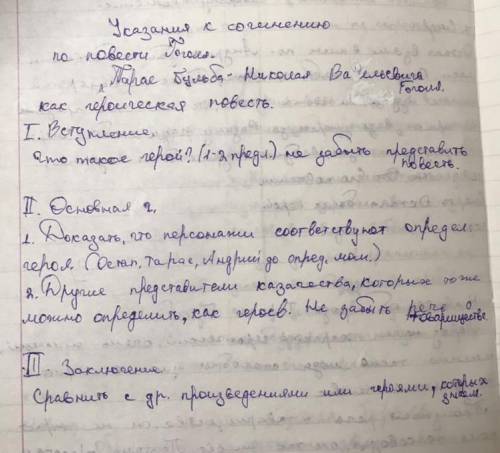 Указания к сочинению
по повести Гоголя.
"Тарас Бульба" Николая Васильевича Гоголя.
как героическая повесть.
I. Вступление.
Что такое герой? (1-2 предл.) не забыть представить повесть.
II. Основная ч.
1. Доказать, что персонажи соответствуют определ.
героя. (Остап, Тарас, Андрий до опред. мом.)
2. Другие представители казачества, которых тоже
можно определить, как героев. Не забыть речь о товариществе.
III Заключение.
Сравнить с др. произведениями или героями, которых знаем.